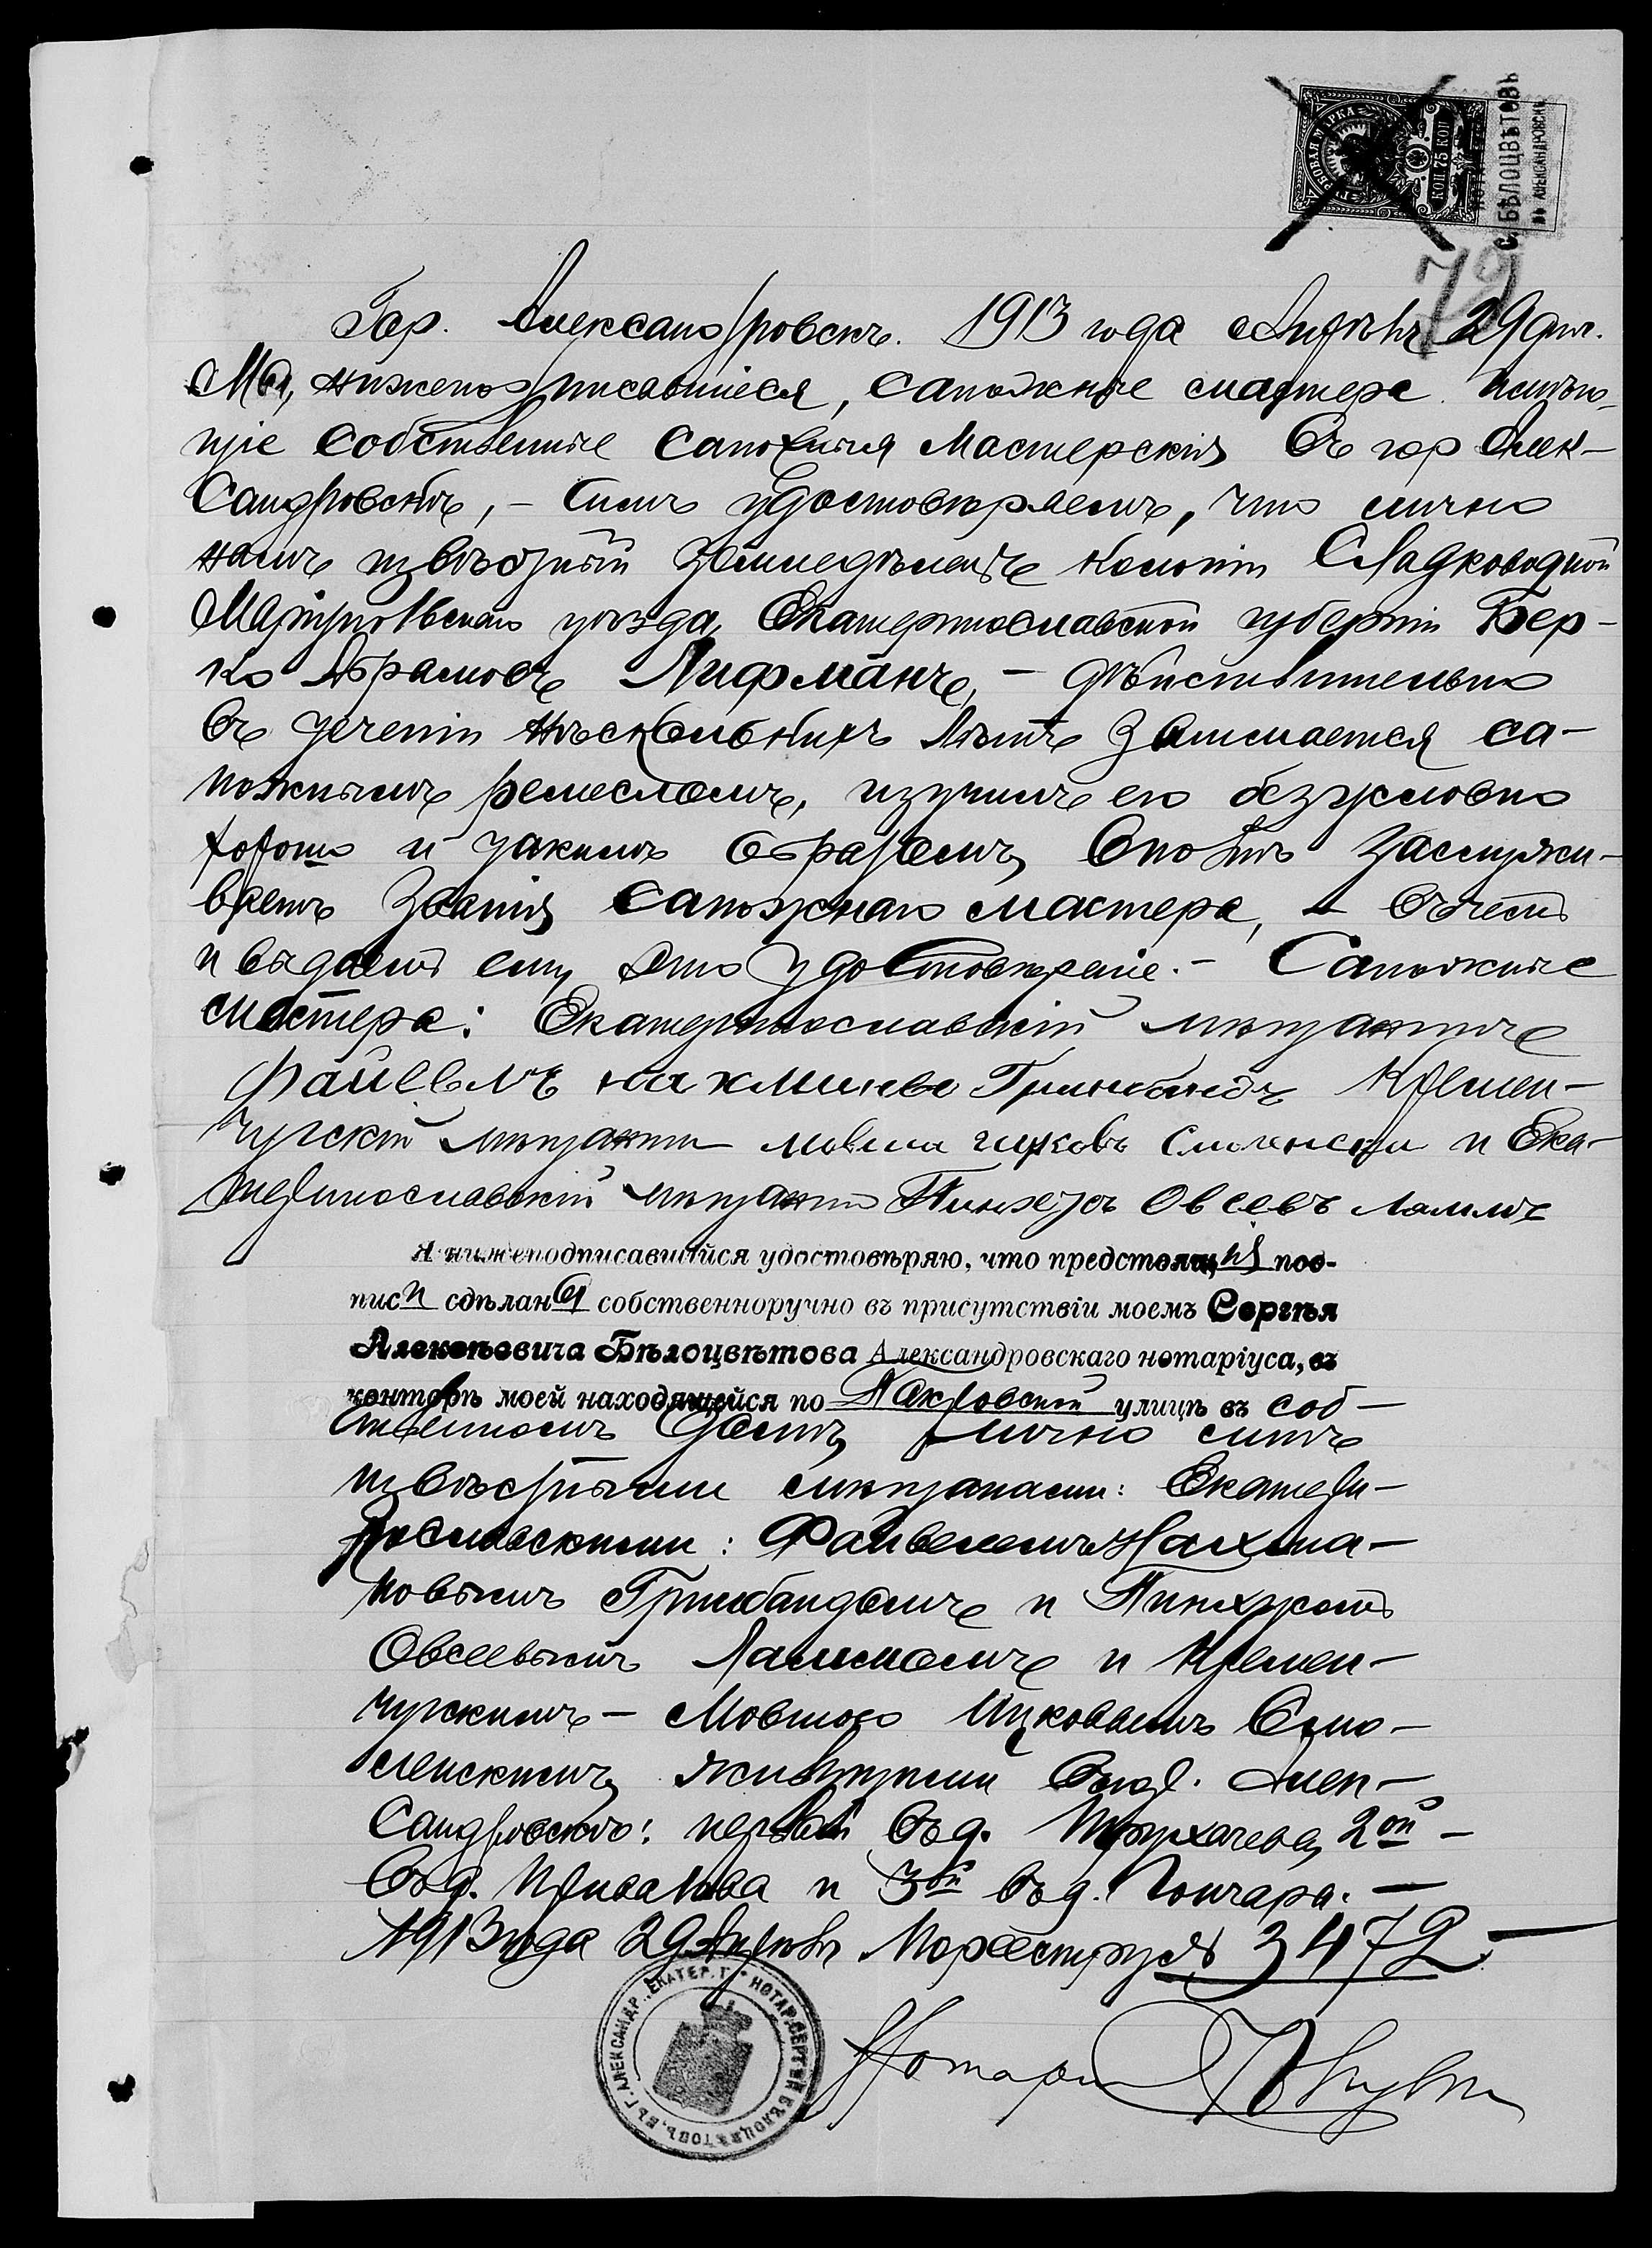 РБОВАЯ МАРКА
КОП 75 КОП
С. БѢЛОЦВѢТОВЪ
ВЪ АЛЕКСАНДРОВСКѢ
72
Гор. Александровскъ. 1913 года Апрѣля 29 дня.
Мы, нижеподписавшіеся, сапожные мастера имѣю-
щіе собственные сапожныя мастерскія въ гор Алек-
сандровскѣ, – симъ удостовѣряемъ, что лично
намъ извѣстный земледѣлецъ колоніи Сладководной
Маріупольскаго уѣзда, Екатеринославской губерніи Бер-
ко Абрамовъ Лифманъ, – дѣйствительно
въ теченіи нѣсколькихъ лѣтъ занимается са-
пожнымъ ремесломъ, изучилъ его безусловно
хорошо и такимъ образомъ вполнѣ заслужи-
ваетъ званія сапожнаго мастера, въ чемъ
и выдаемъ ему это удостовѣреніе. – Сапожные
мастера: Екатеринославскій мѣщанинъ
Файвелъ Нахмановъ Гринбандъ Кремен-
чугскій мѣщанинъ Мовша Ицковъ Смоленскій и Ека-
теринославскій мѣщанинъ Пинхусъ Овсеевъ Ламмъ
Я нижеподписавшійся удостовѣряю, что предстоящія под-
писи сдѣланы собственноручно въ присутствіи моемъ Сергѣя
Алексѣевича Бѣлоцвѣтова Александровскаго нотаріуса, въ
конторѣ моей находящейся по Покровской улицѣ въ соб-
ственномъ домѣ, лично мнѣ
извѣстными мѣщанами: Екатери-
нославскими: Файвелемъ Нахма-
новымъ Гринбандомъ и Пинхусомъ
Овсеевымъ Ламмомъ и Кремен-
чугскимъ – Мовшою Ицковымъ Смо-
ленскимъ, живущими въ гор. Алек-
сандровскѣ: первый въ д. 2ой –
въ д. Привалова и 3ій въ д. Гончара. –
1913 года 29 Апрѣля По реестру № 3472 –
ВЪ Г. АЛЕКСАНДР., ЕКАТЕР. Г. * НОТАР. СЕРГѢЙ БѢЛОЦВѢТОВЪ
Нотаріусъ